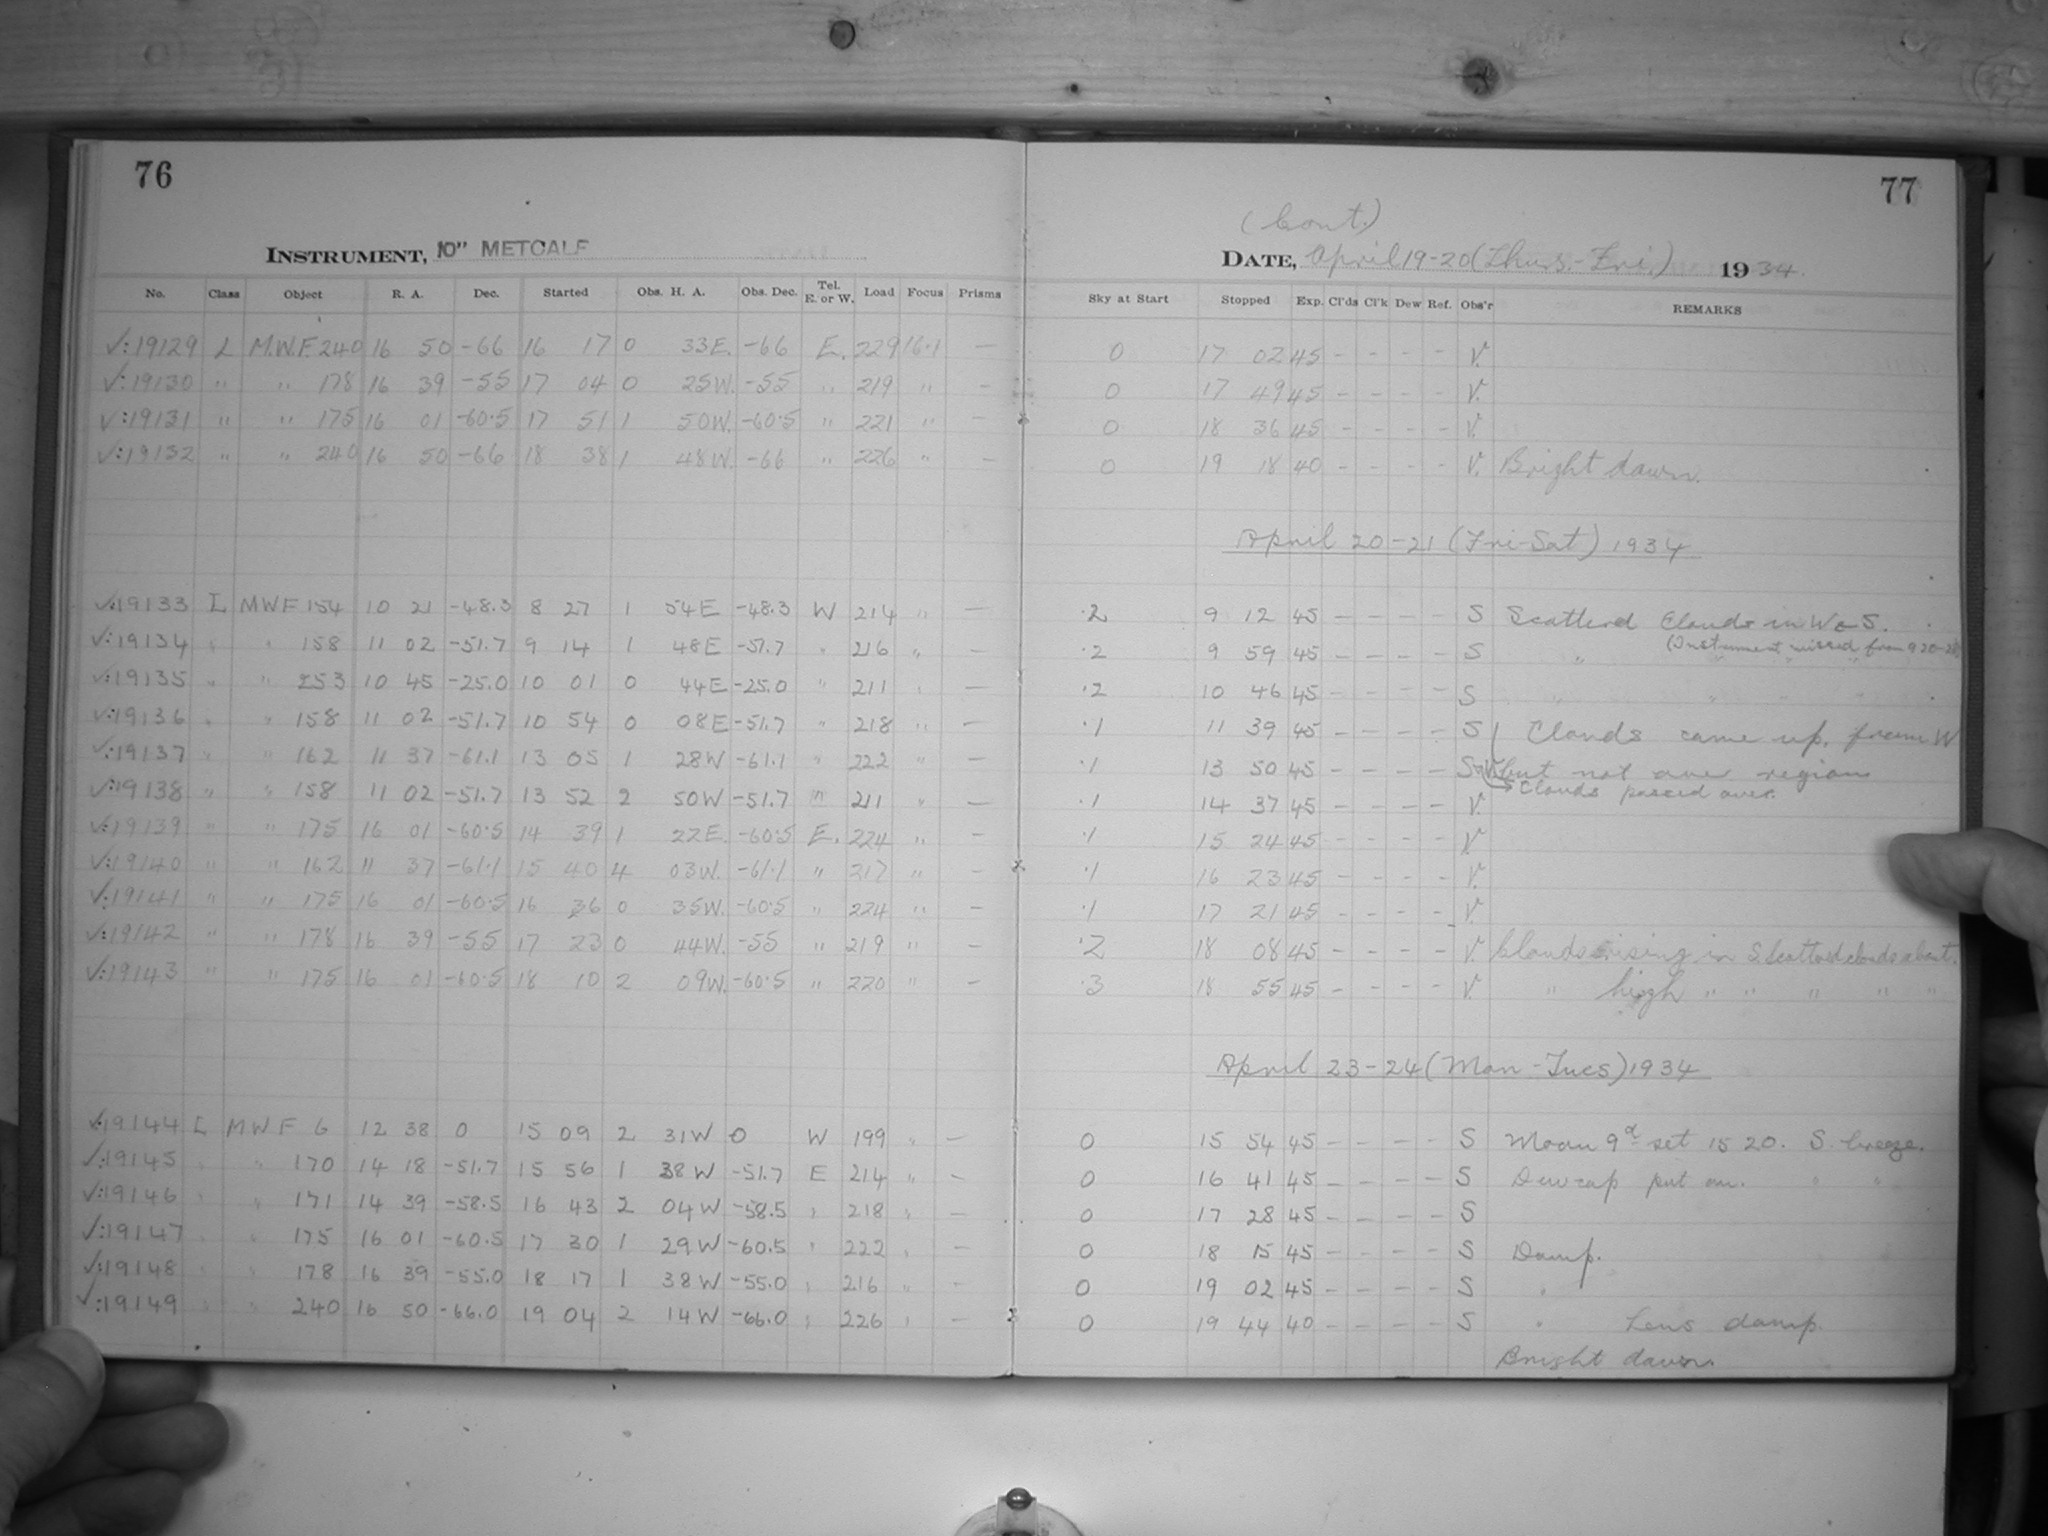 76
INSTRUMENT, 10" METCALF
No. Class Object R. A. Dec. Started Obs. H. A. Obs. Dec. Tel. E. or W. Load Focus Prisms
√:19129 L M.W.F. 240 16 50 -66 16 17 0 33E. -66 E. 229 16.1 —
√:19130 " " 178 16 39 -55 17 04 0 25W. -55 " 219 " —
√:19131 " " 175 16 01 -60.5 17 51 1 50W. -60.5 " 221 " —
√:19132 " " 240 16 50 -66 18 38 1 48W. -66 " 226 " —
√:19133 L MWF 154 10 21 -48.3 8 27 1 54E -48.3 W 214 " —
√:19134 " " 158 11 02 -51.7 9 14 1 48E -51.7 " 216 " —
√:19135 " " 253 10 45 -25.0 10 01 0 44E -25.0 " 211 " —
√:19136 " " 158 11 02 -51.7 10 54 0 08E -51.7 " 218 " —
√:19137 " " 162 11 37 -61.1 13 05 1 28W -61.1 " 222 " —
√:19138 " " 158 11 02 -51.7 13 52 2 50W -51.7 " 211 " —
√:19139 " " 175 16 01 -60.5 14 39 1 22E. -60.5 E. 224 " —
√:19140 " " 162 11 37 -61.1 15 40 4 03W. -61.1 " 217 " —
√:19141 " " 175 16 01 -60.5 16 36 0 35W. -60.5 " 224 " —
√:19142 " " 178 16 39 -55 17 23 0 44W. -55 " 219 " —
√:19143 " " 175 16 01 -60.5 18 10 2 09W. -60.5 " 220 " —
√:19144 L MWF 6 12 38 0 15 09 2 31W 0 W 199 " —
√:19145 " " 170 14 18 -51.7 15 56 1 38W -51.7 E 214 " —
√:19146 " " 171 14 39 -58.5 16 43 2 04W -58.5 " 218 " —
√:19147 " " 175 16 01 -60.5 17 30 1 29W -60.5 " 222 " —
√:19148 " " 178 16 39 -55.0 18 17 1 38W -55.0 " 216 " —
√:19149 " " 240 16 50 -66.0 19 04 2 14W -66.0 " 226 " —
77
(Cont.)
DATE, April 19-20 (Thurs.-Fri.) 1934.
Sky at Start Stopped Exp. Cl'ds Cl'k Dew Ref. Obs'r REMARKS
0 17 02 45 - - - - V.
0 17 49 45 - - - - V.
0 18 36 45 - - - - V.
0 19 18 40 - - - - V. Bright dawn.
April 20-21 (Fri-Sat) 1934
.2 9 12 45 - - - - S Scattered Clouds in W & S.
.2 9 59 45 - - - - S " (Instrument missed from 9 20-28)
.2 10 46 45 - - - - S " " " "
.1 11 39 45 - - - - S Clouds came up from W
.1 13 50 45 - - - - S&V but not over region
.1 14 37 45 - - - - V. Clouds passed over.
.1 15 24 45 - - - - V.
.1 16 23 45 - - - - V.
.1 17 21 45 - - - - V.
.2 18 08 45 - - - - V. Clouds rising in S. Scattered clouds about.
.3 18 55 45 - - - - V. " high " " " " "
April 23-24 (Mon-Tues) 1934
0 15 54 45 - - - - S Moon 9d set 15 20. S. breeze.
0 16 41 45 - - - - S Dewcap put on. " "
0 17 28 45 - - - - S
0 18 15 45 - - - - S Damp.
0 19 02 45 - - - - S "
0 19 44 40 - - - - S " Lens damp.
Bright dawn.